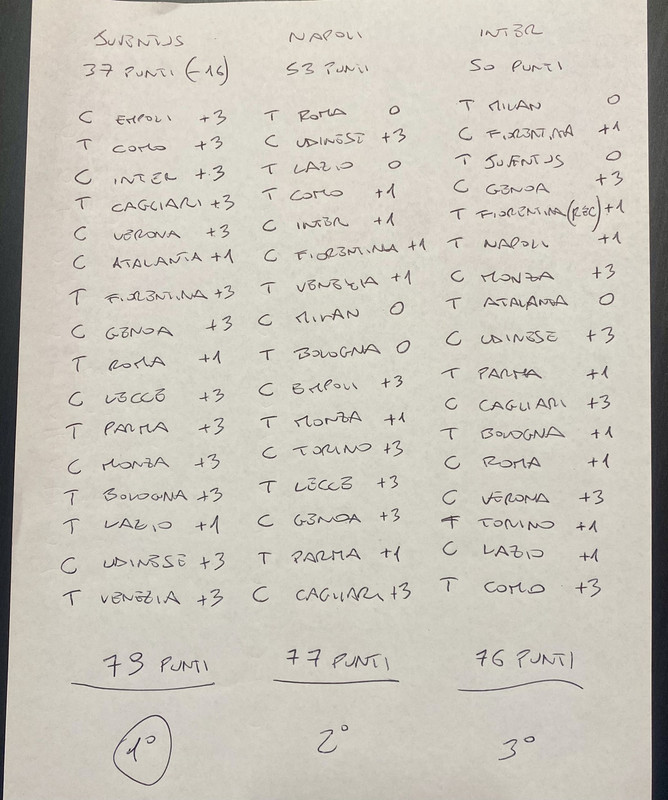 JUVENTUS
37 PUNTI (-16)
C EMPOLI +3
T COMO +3
C INTER +3
T CAGLIARI +3
C VERONA +3
C ATALANTA +1
T FIORENTINA +3
C GENOA +3
T ROMA +1
C LECCE +3
T PARMA +3
C MONZA +3
T BOLOGNA +3
T LAZIO +1
C UDINESE +3
T VENEZIA +3
79 PUNTI
1°
NAPOLI
53 PUNTI
T ROMA 0
C UDINESE +3
T LAZIO 0
T COMO +1
C INTER +1
C FIORENTINA +1
T VENEZIA +1
C MILAN 0
T BOLOGNA 0
C EMPOLI +3
T MONZA +1
C TORINO +3
T LECCE +3
C GENOA +3
T PARMA +1
C CAGLIARI +3
77 PUNTI
2°
INTER
50 PUNTI
T MILAN 0
C FIORENTINA +1
T JUVENTUS 0
C GENOA +3
T FIORENTINA (REC) +1
T NAPOLI +1
C MONZA +3
T ATALANTA 0
C UDINESE +3
T PARMA +1
C CAGLIARI +3
T BOLOGNA +1
C ROMA +1
C VERONA +3
T TORINO +1
C LAZIO +1
T COMO +3
76 PUNTI
3°